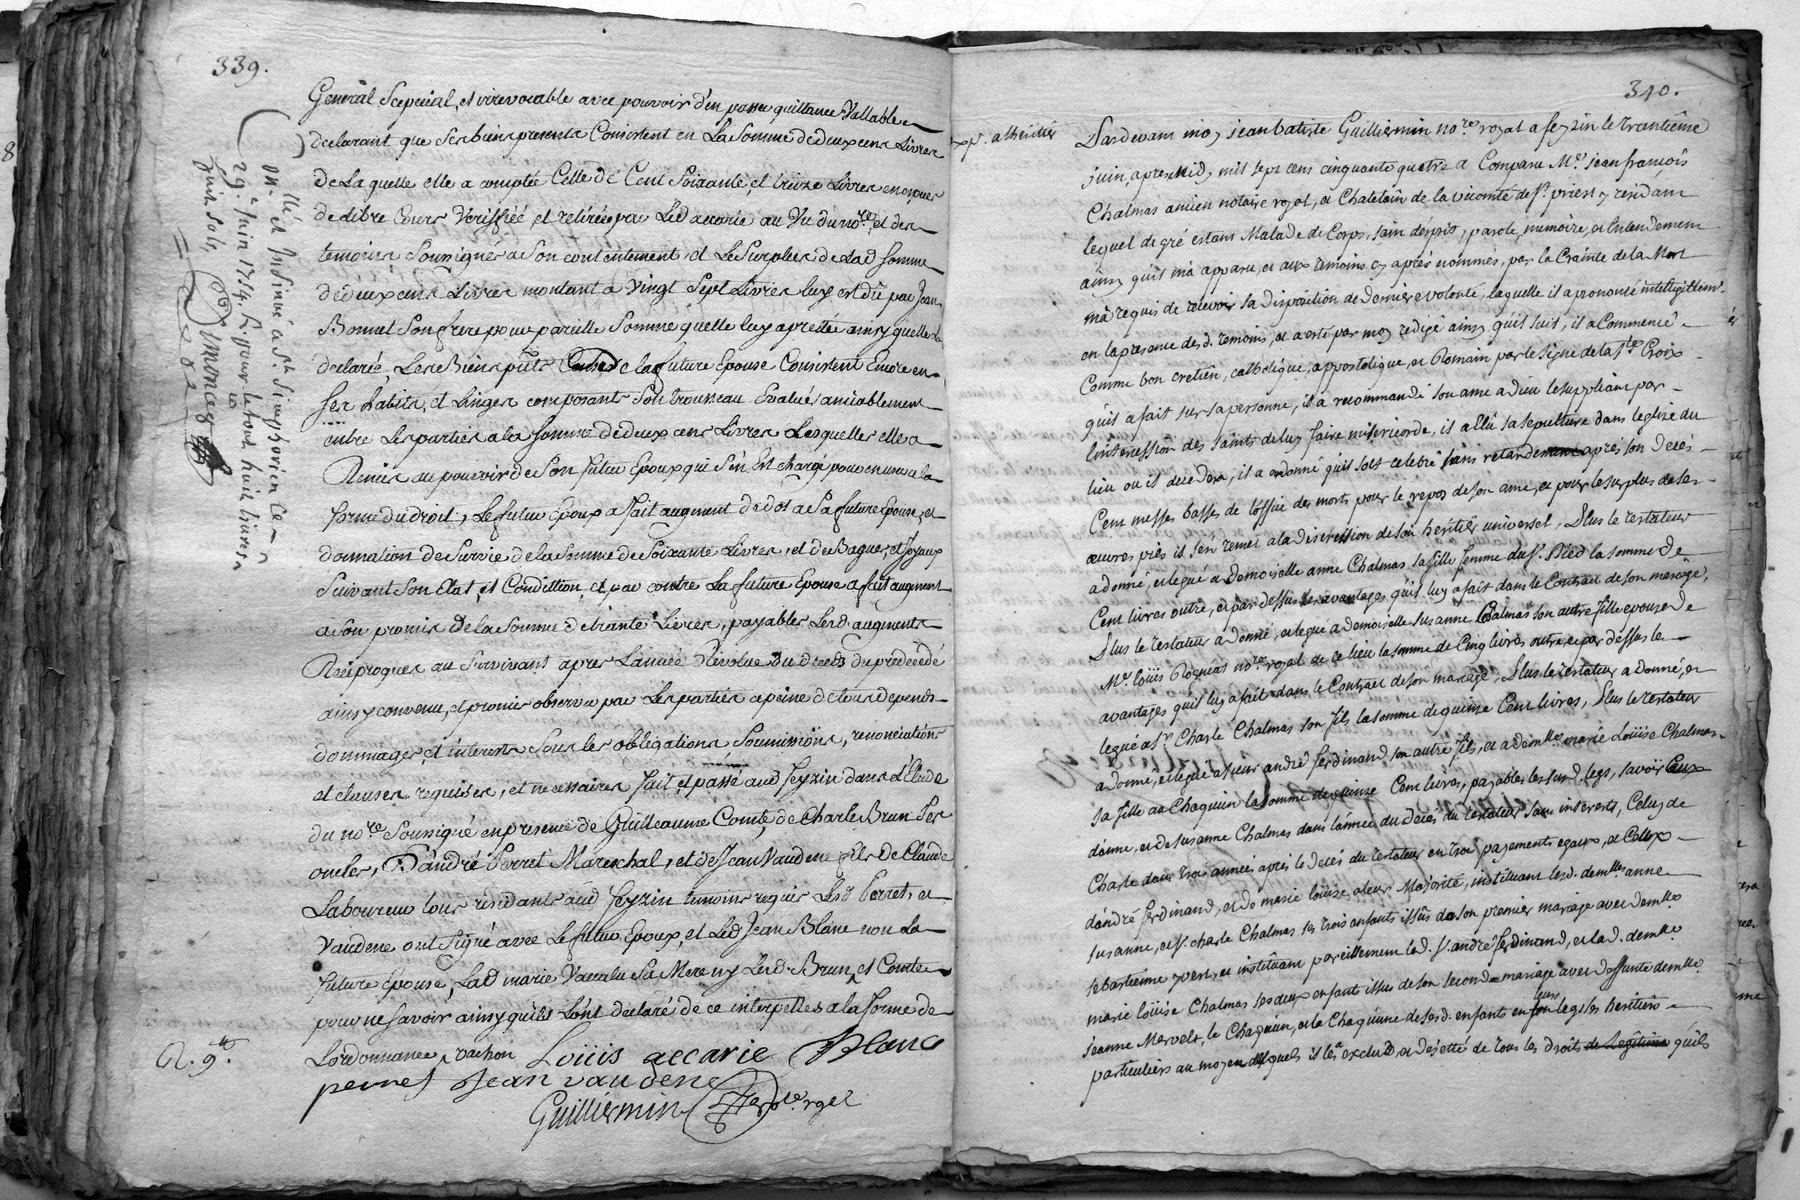 339.
General Scpecial, et irrevocable avec pouvoir d'en passer quittance Vallable
declarant que ses biens presents Consistent en La Somme de deux cens Livres
de Laquelle elle a compté Celle de Cent Soixante, et treize Livres en especes
de libre Cours Veriffiée, et retirée par Led accarie au Vu du nore. et des
temoins Soussignés a Son contentement et Le Surplus de Lad Somme
de deux cens Livres montant a Vingt Sept Livres luy est dû par Jean
Bonnet Son frere pour pareille Somme quelle luy a prettée ainsy quelle la
declaré. Les Biens pnts de la future Epouse Consistent Encore en
Ses habits, et Linges composants Son trousseau Evalués amiablement
entre Les parties a la Somme de deux cens Livres Lesquelles elle a
Remis au pouvoir de Son futur Epoux qui S'en Est chargé pour en user a la
forme du droit, Le futur Epoux a fait augment de dot a Sa future Epouse, et
donnation de Survie de la Somme de Soixante Livres, et de Bagues, et Joyaux
Suivant Son Etat, et Condition, et par contre La future Epouse a fait augment
a Son promis de la Somme de trante Livres, payables Lesd. augments
Reciproques au Survivant apres L'année Revolue du deceds du predecédé
ainsy convenu, et promis observer par Les parties a peine de tous depends
dommages, et interests Sous les obligations Soumissions, renonciations
et clauses requises, et necessaires fait, et passé aud feyzin dans L'Etude
du nore. Soussigné en presence de Guilleaume Comte, de Charle Brun Ser
D'andré Perret Mareschal, et de Jean Vaudene fils de Claude
Laboureur tous residants aud feyzin temoins requis Lesd Perret, et
Vaudene ont Signé avec Le futur Epoux, et Led Jean Blanc non La
future Epouse, Lad marie Sa Mere ny Lesd. Brun, et Comte
pour ne Savoir ainsy quils L'ont declaré de ce interpellés a la forme de
Lordonnance, vachon Loüis accarie Blanc
perret Jean vaudene
Guilliermin
R. 9s.
Con.llé et Insinué a St. Simphorien Le
29.e Juin 1754. R. pour le tout huit livres
huit sols
Simonces
340.
exp. a lheritier
Pardevant moy jean batiste Guilliermin nore. royal a feyzin le trantième
juin, apres Midy mil sept cens cinquante quatre a Comparu Me. jean françois
Chalmas ancien notaire royal, et Chatelain de la vicomté de St. priest y residant
lequel de gré estant Malade de Corps, sain desprit, parole, memoire, et Entendement
ainsy quil m'a apparu, et aux temoins cy aprés nommés, par la Crainte de la Mort
m'a requis de recevoir sa disposition de derniere volonté, laquelle il a prononcé intelligiblemt.
en la presence desd. temoins, et a esté par moy redigé ainsy quil suit, il a Commencé
Comme bon cretien, catholique, appostolique, et Romain par le Signe de la Ste Croix
quil a fait sur sa personne, il a recommandé son ame a dieu le suppliant par
lintercession des saints de luy faire misericorde, il a Elû sa sepulture dans leglise du
lieu ou il decedera, il a ordonné quil soit celebré sans retardement aprés son decés
Cent messes basses de loffice des morts pour le repos de son ame, et pour le surplus de ses
œuvres pies il s'en remet a la discression de son heritier universel, Plus le testateur
a donné, et legué a demoiselle anne Chalmas sa fille femme du Sr. Pied la somme de
Cent livres outre, et par dessus les avantages qu'il luy a fait dans le Contract de son mariage,
Plus le testateur a donné, et legué a demoiselle susanne Chalmas son autre fille epouse de
Me. loüis Roquias nore. royal de ce lieu la somme de Cinq livres outre et par dessus les
avantages qu'il luy a fait dans le Contract de son mariage, Plus le testateur a donné, et
legué a Sr. Charle Chalmas son fils la somme de quinze Cent livres, Plus le testateur
a donné, et legué a sieur andré ferdinand son autre fils, et a demlle. marie Loüise Chalmas
sa fille a Chaquun la somme de quinze Cent livres, payables lesusd. legs, savoir Ceux
danne, et de susanne Chalmas dans lannée du decés du testateur sans interests, Celuy de
Charle dans trois années aprés le decés du testateur en trois payements egaux, et Ceux
dandré ferdinand, et de marie loüise a leur Majorité, instituant lesd. demlle. anne
susanne, et Sr. charle Chalmas ses trois enfants issûs de son premier mariage avec demlle
sebastienne yvert, et instituant pareillement led. Sr. andré ferdinand, et lad. demlle.
marie loüise Chalmas ses deux enfants issus de son second mariage avec deffunte demlle.
jeanne Mervelt, le Chaquun, et la Chaquune de sesd. enfants en leurs legs ses heritiers
particuliers au moyen desquels il les a exclud, et dejetté de tous les droits de Legitime quils